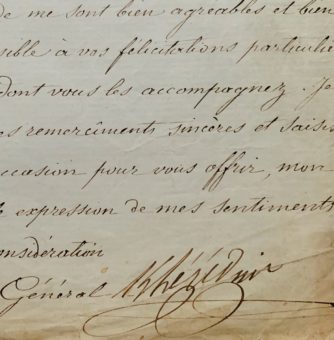 de me sont bien agreables et bien
sible à vos félicitations particuliè
dont vous les accompagnez. Je
es remerciments sincères et saisis
ccasion pour vous offrir, mon
expression de mes sentiments
onsidération
Général Khérédine